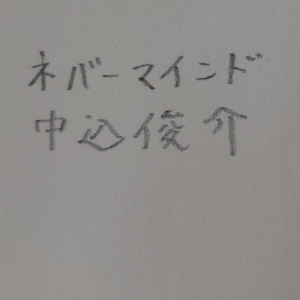 ネバーマインド
中込俊介